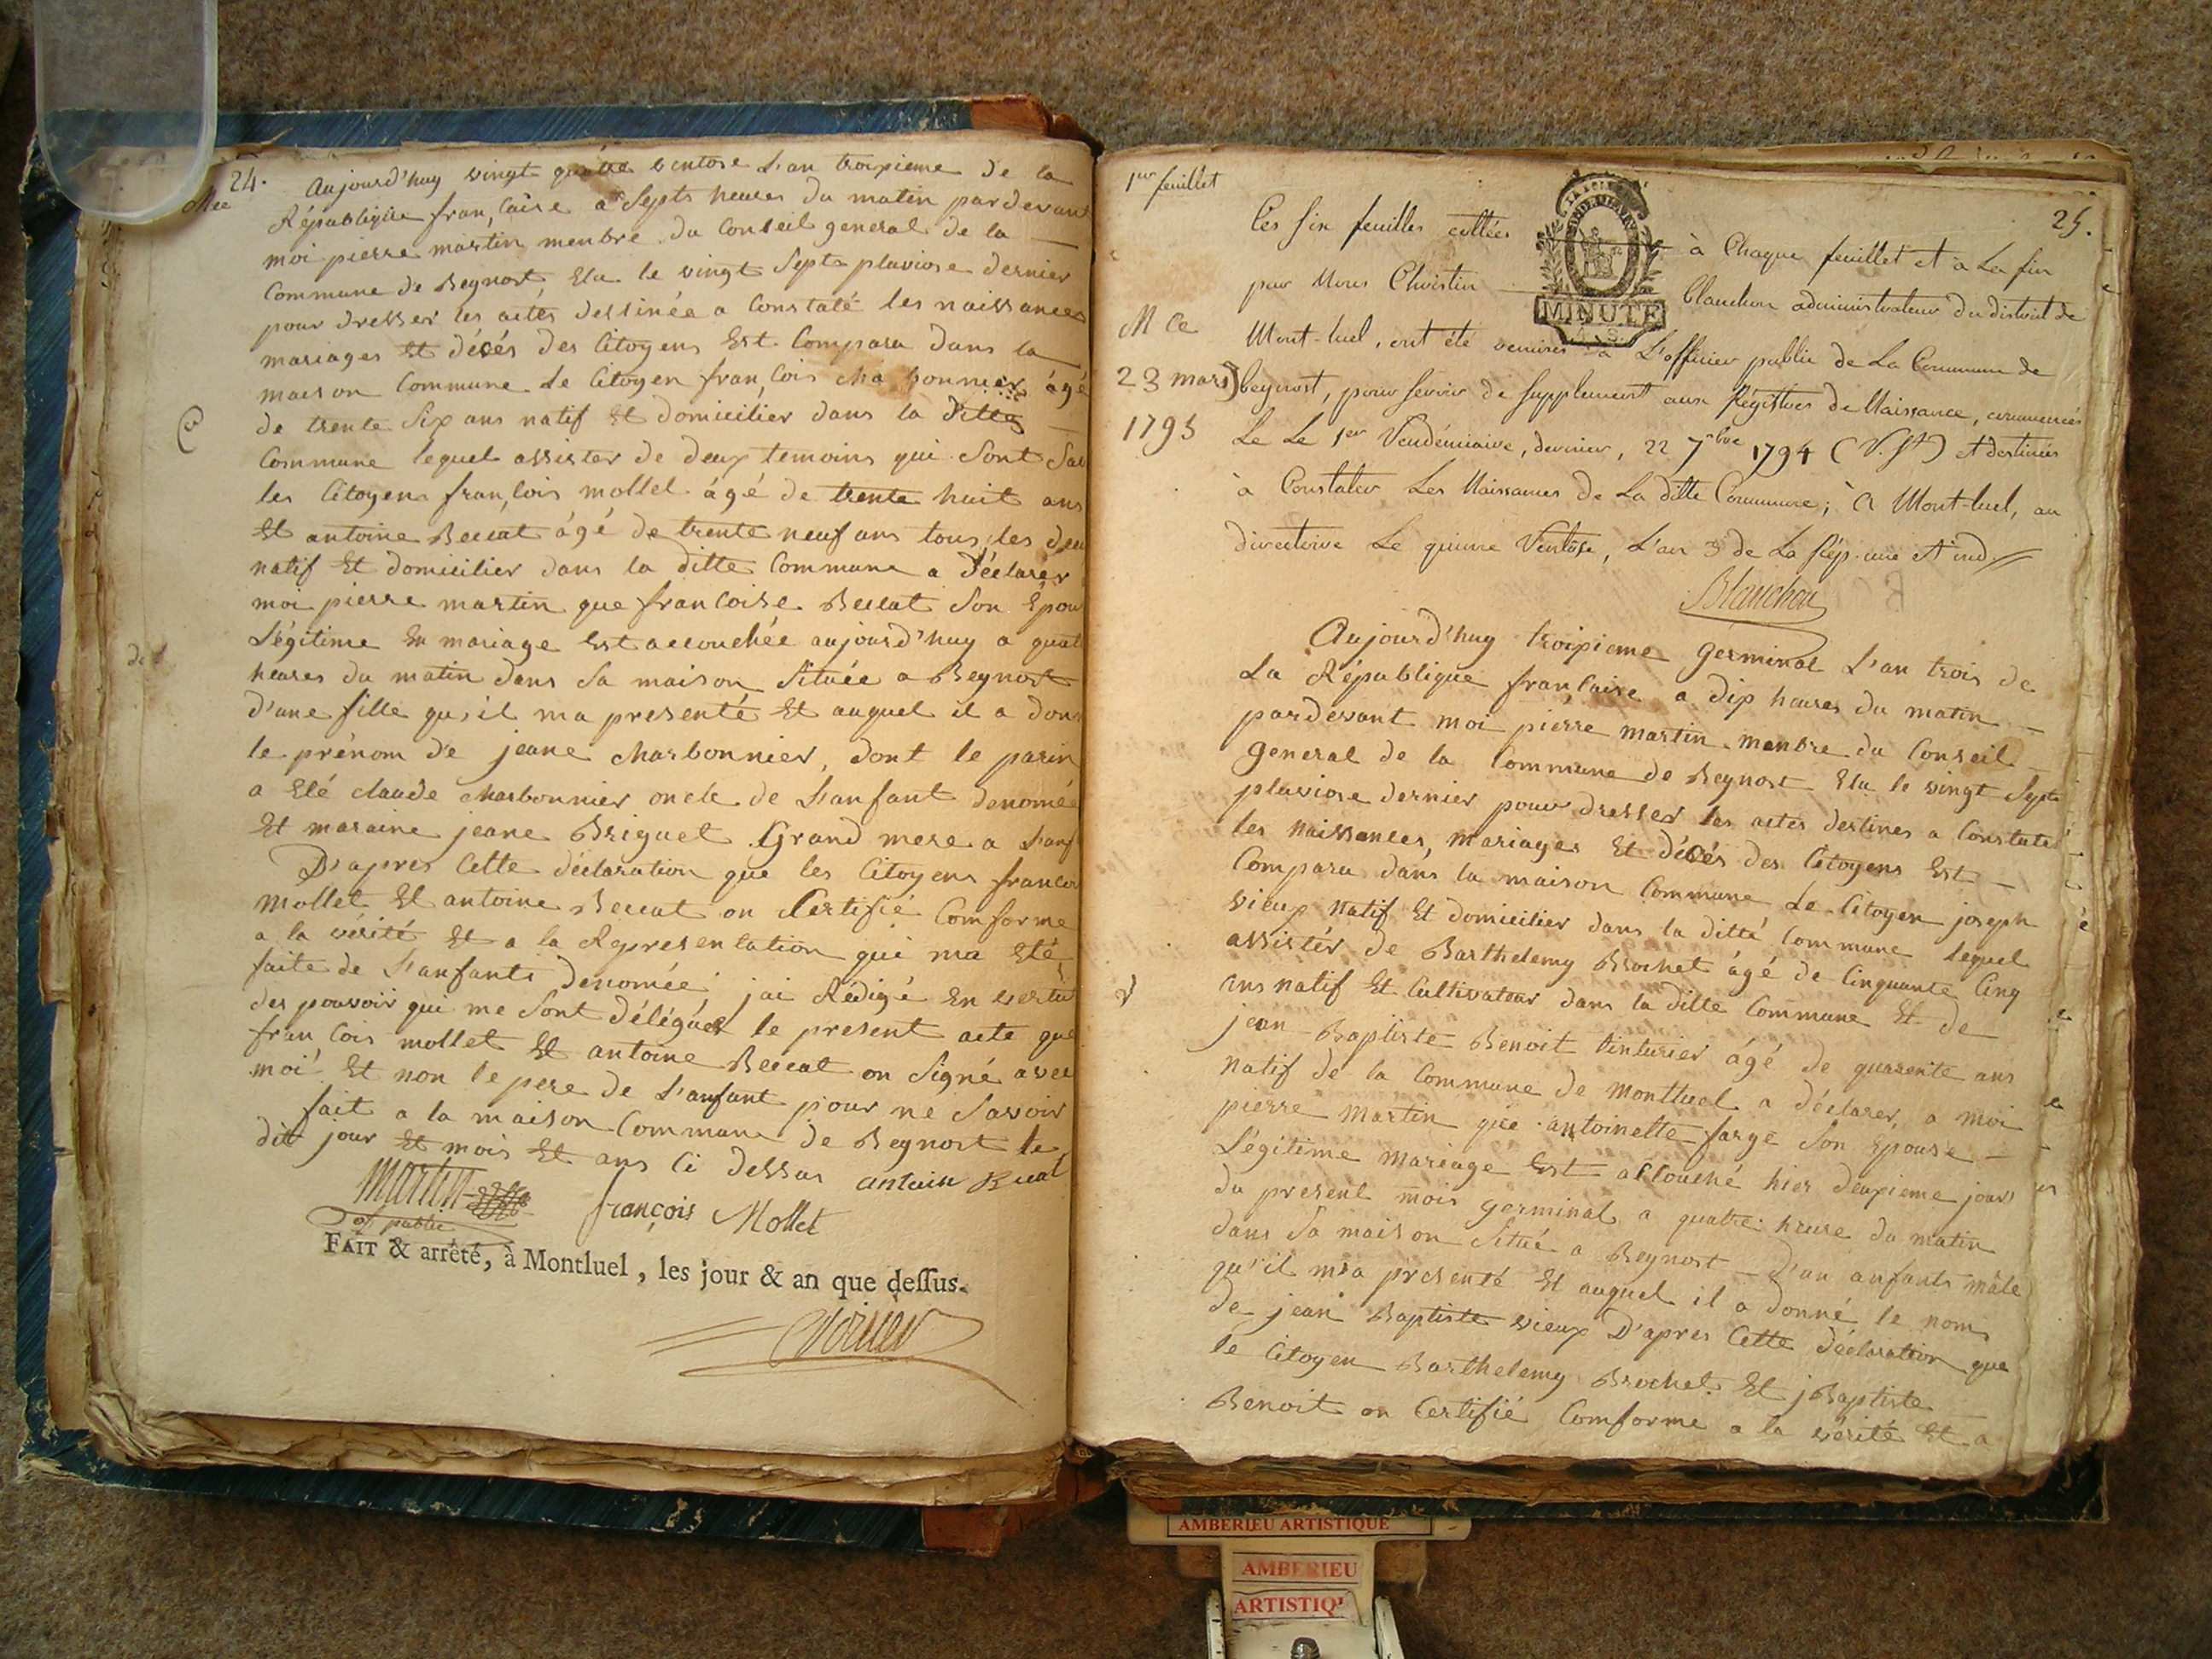 24.
Aujourd'huy vingt quatre ventose L'an troixieme de la
République francaise a Septs heures du matin pardevant
moi pierre martin menbre du Conseil general de la
Commune de Beynost, Elu le vingt Septs pluviose dernier
pour dresser les actes dessinée a Constaté les naissances
mariages Et décés des Citoyens Est Comparu dans la
maison Commune Le Citoyen francois charbonnier, ágé
de trente Six ans natif Et domicilier dans la ditte
Commune lequel assister de deux temoins qui Sont
les Citoyens francois mollet ágé de trente huit ans
Et antoine Beccat ágé de trente neuf ans tous les deu
natif Et domicilier dans la ditte Commune a déclarer
moi pierre martin que francoise Beccat Son Épou
Légitime En mariage Est accouchée aujourd'huy a quat
heures du matin dans Sa maison Située a Beynost
d'une fille qu'il ma presenté Et auquel il a don
le prénom de jeane charbonnier, dont le parin
a Eté claude charbonnier oncle de L'anfant denomée
Et maraine jeane Briguet Grand mere a L'anf
D'apres Cette déclaration que les Citoyens francoi
mollet Et antoine Beccat on Certifié Comforme
a la vérité Et a la Representation qui ma Eté
faite de L'anfants denomée jai Rédigé En vertu
des pouvoir qui me Sont déléguer le present acte que
francois mollet Et antoine Beccat on Signé avec
moi Et non le pere de L'anfant pour ne Savoir
fait a la maison Commune de Beynost le
dit jour Et mois Et ans Ci dessus antoin Bucat
martin françois Mollet
of public
FAIT & arrêté, à Montluel, les jour & an que deſſus.
1er feuillet
25.
Ces six feuilles cottées à Chaque feuillet et à La fin
par Nous Christin Blanchon administrateur du district de
MINUTE
Mont-luel, ont été remises à L'officier public de La Commune de
M Ce
23 mars
1795
beynost, pour servir de supplement aux Régistres de Naissance, commencés
Le Le 1er Vendémiaire, dernier, 22 7bre 1794 (V. St) et destinés
à Constater Les Naissances de La ditte Commune; à Mont-luel, au
directoire Le quinze Ventôse, L'an 3 de La Rép. une et ind.
Blanchon
Aujourd'huy troixieme germinal L'an trois de
La République francaise a dix heures du matin
pardevant moi pierre martin menbre du Conseil
general de la Commune de Beynost Elu le vingt Septs
pluviose dernier pour dresser les actes destines a Constaté
les naissances, mariages Et décés des Citoyens Est
Comparu dans la maison Commune Le Citoyen joseph
vieux natif Et domicilier dans la ditte Commune lequel
assistér de Barthelemy Brochet ágé de Cinquante Cinq
ans natif Et Cultivateur dans la ditte Commune Et de
jean Baptiste Benoit tinturier ágé de quarente ans
natif de la Commune de montluel a déclarer, a moi
pierre martin que antoinette farge Son Epouse
Légitime mariage Est accouché hier deuxieme jour
du present mois germinal a quatre heure du matin
dans Sa maison Situé a Beynost D'un anfants mâle
qu'il ma presenté Et auquel il a donné le nom
de jean Baptiste vieux D'apres Cette déclaration que
le Citoyen Barthelemy Brochet Et jBaptiste
Benoit on Certifié Comforme a la verité Et a
AMBERIEU ARTISTIQUE
AMBERIEU
ARTISTIQ